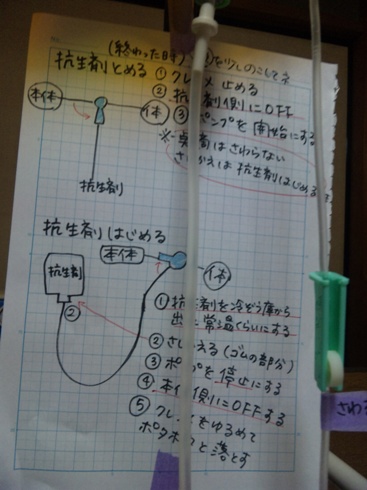 (終わった時)
を少しのこしてネ
抗生剤とめる ① クレ メ 止める
② 抗 剤側にOFF
③ ポンプを開始にする
※ はさわらない
さ かえは 抗生剤はじめる
本体
体
抗生剤
抗生剤はじめる
本体
体
抗生剤
②
① 抗 剤を冷ぞう庫から
出 常温くらいにする
② さし える(ゴムの部分)
③ ポ プを停止にする
④ 本 側にOFFする
⑤ クレ をゆるめて
ポタポ と落とす
さわ